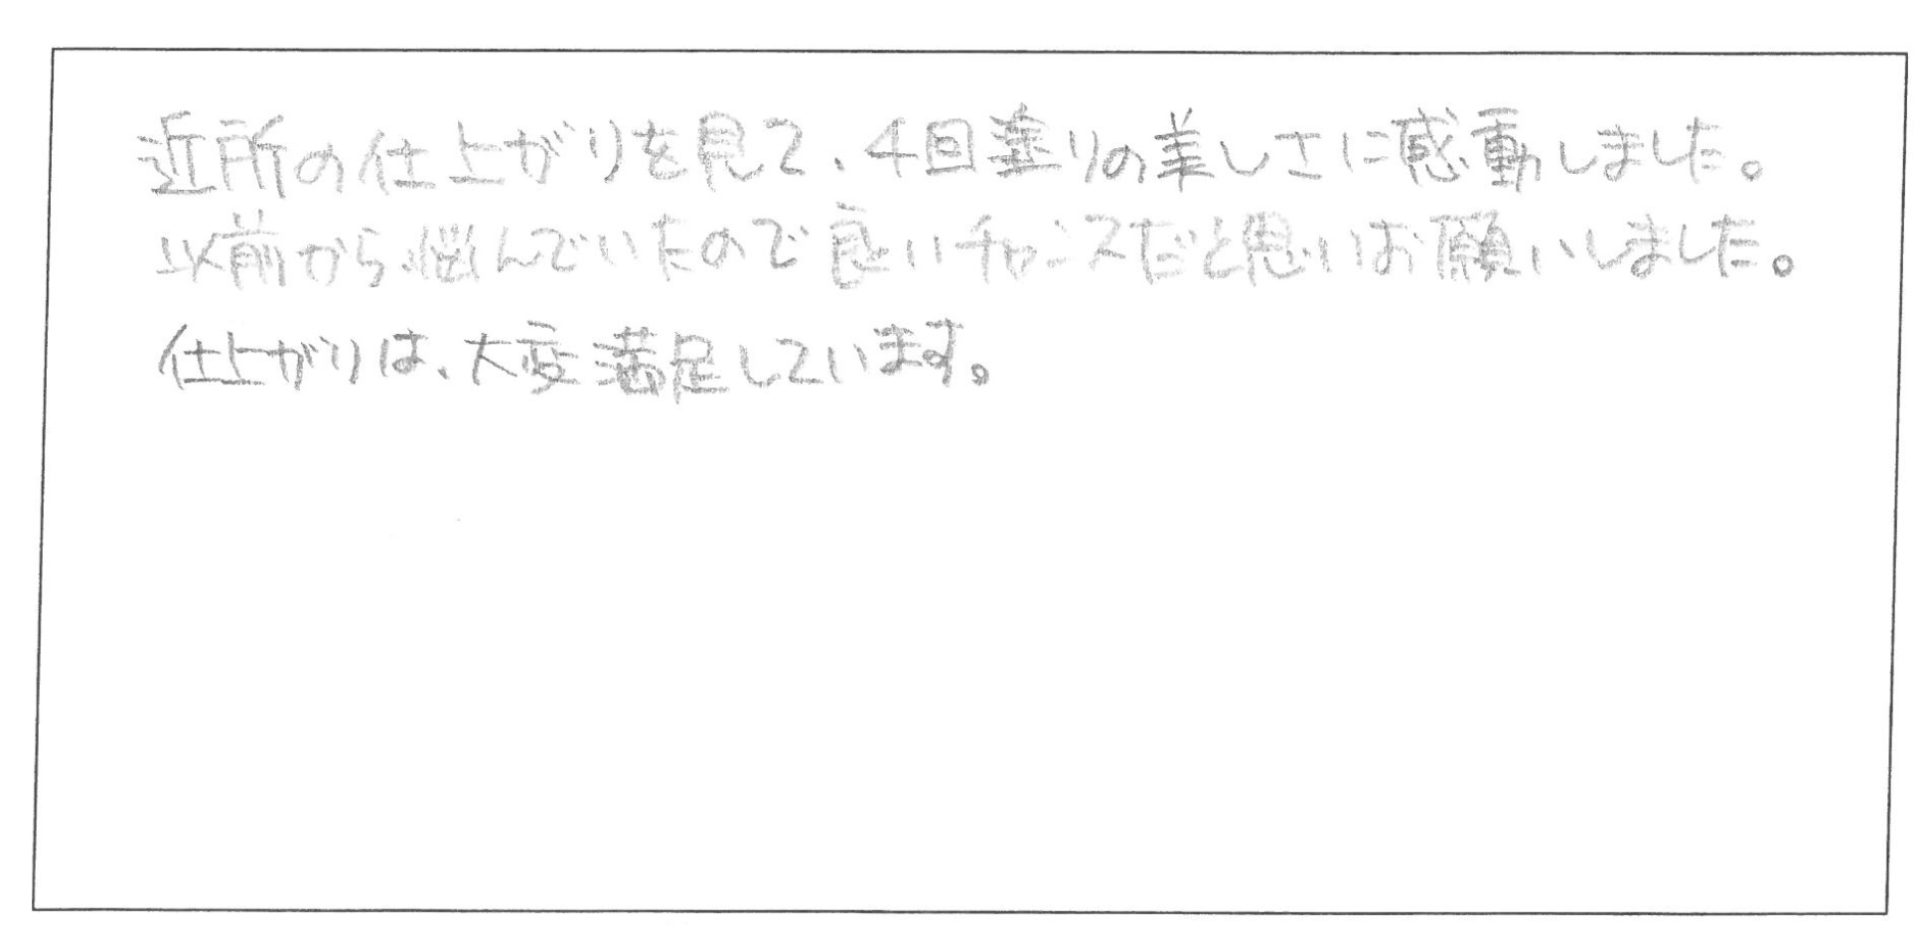 近所の仕上がりを見て、4回塗りの美しさに感動しました。
以前から悩んでいたので良いチャンスだと思いお願いしました。
仕上がりは、大変満足しています。